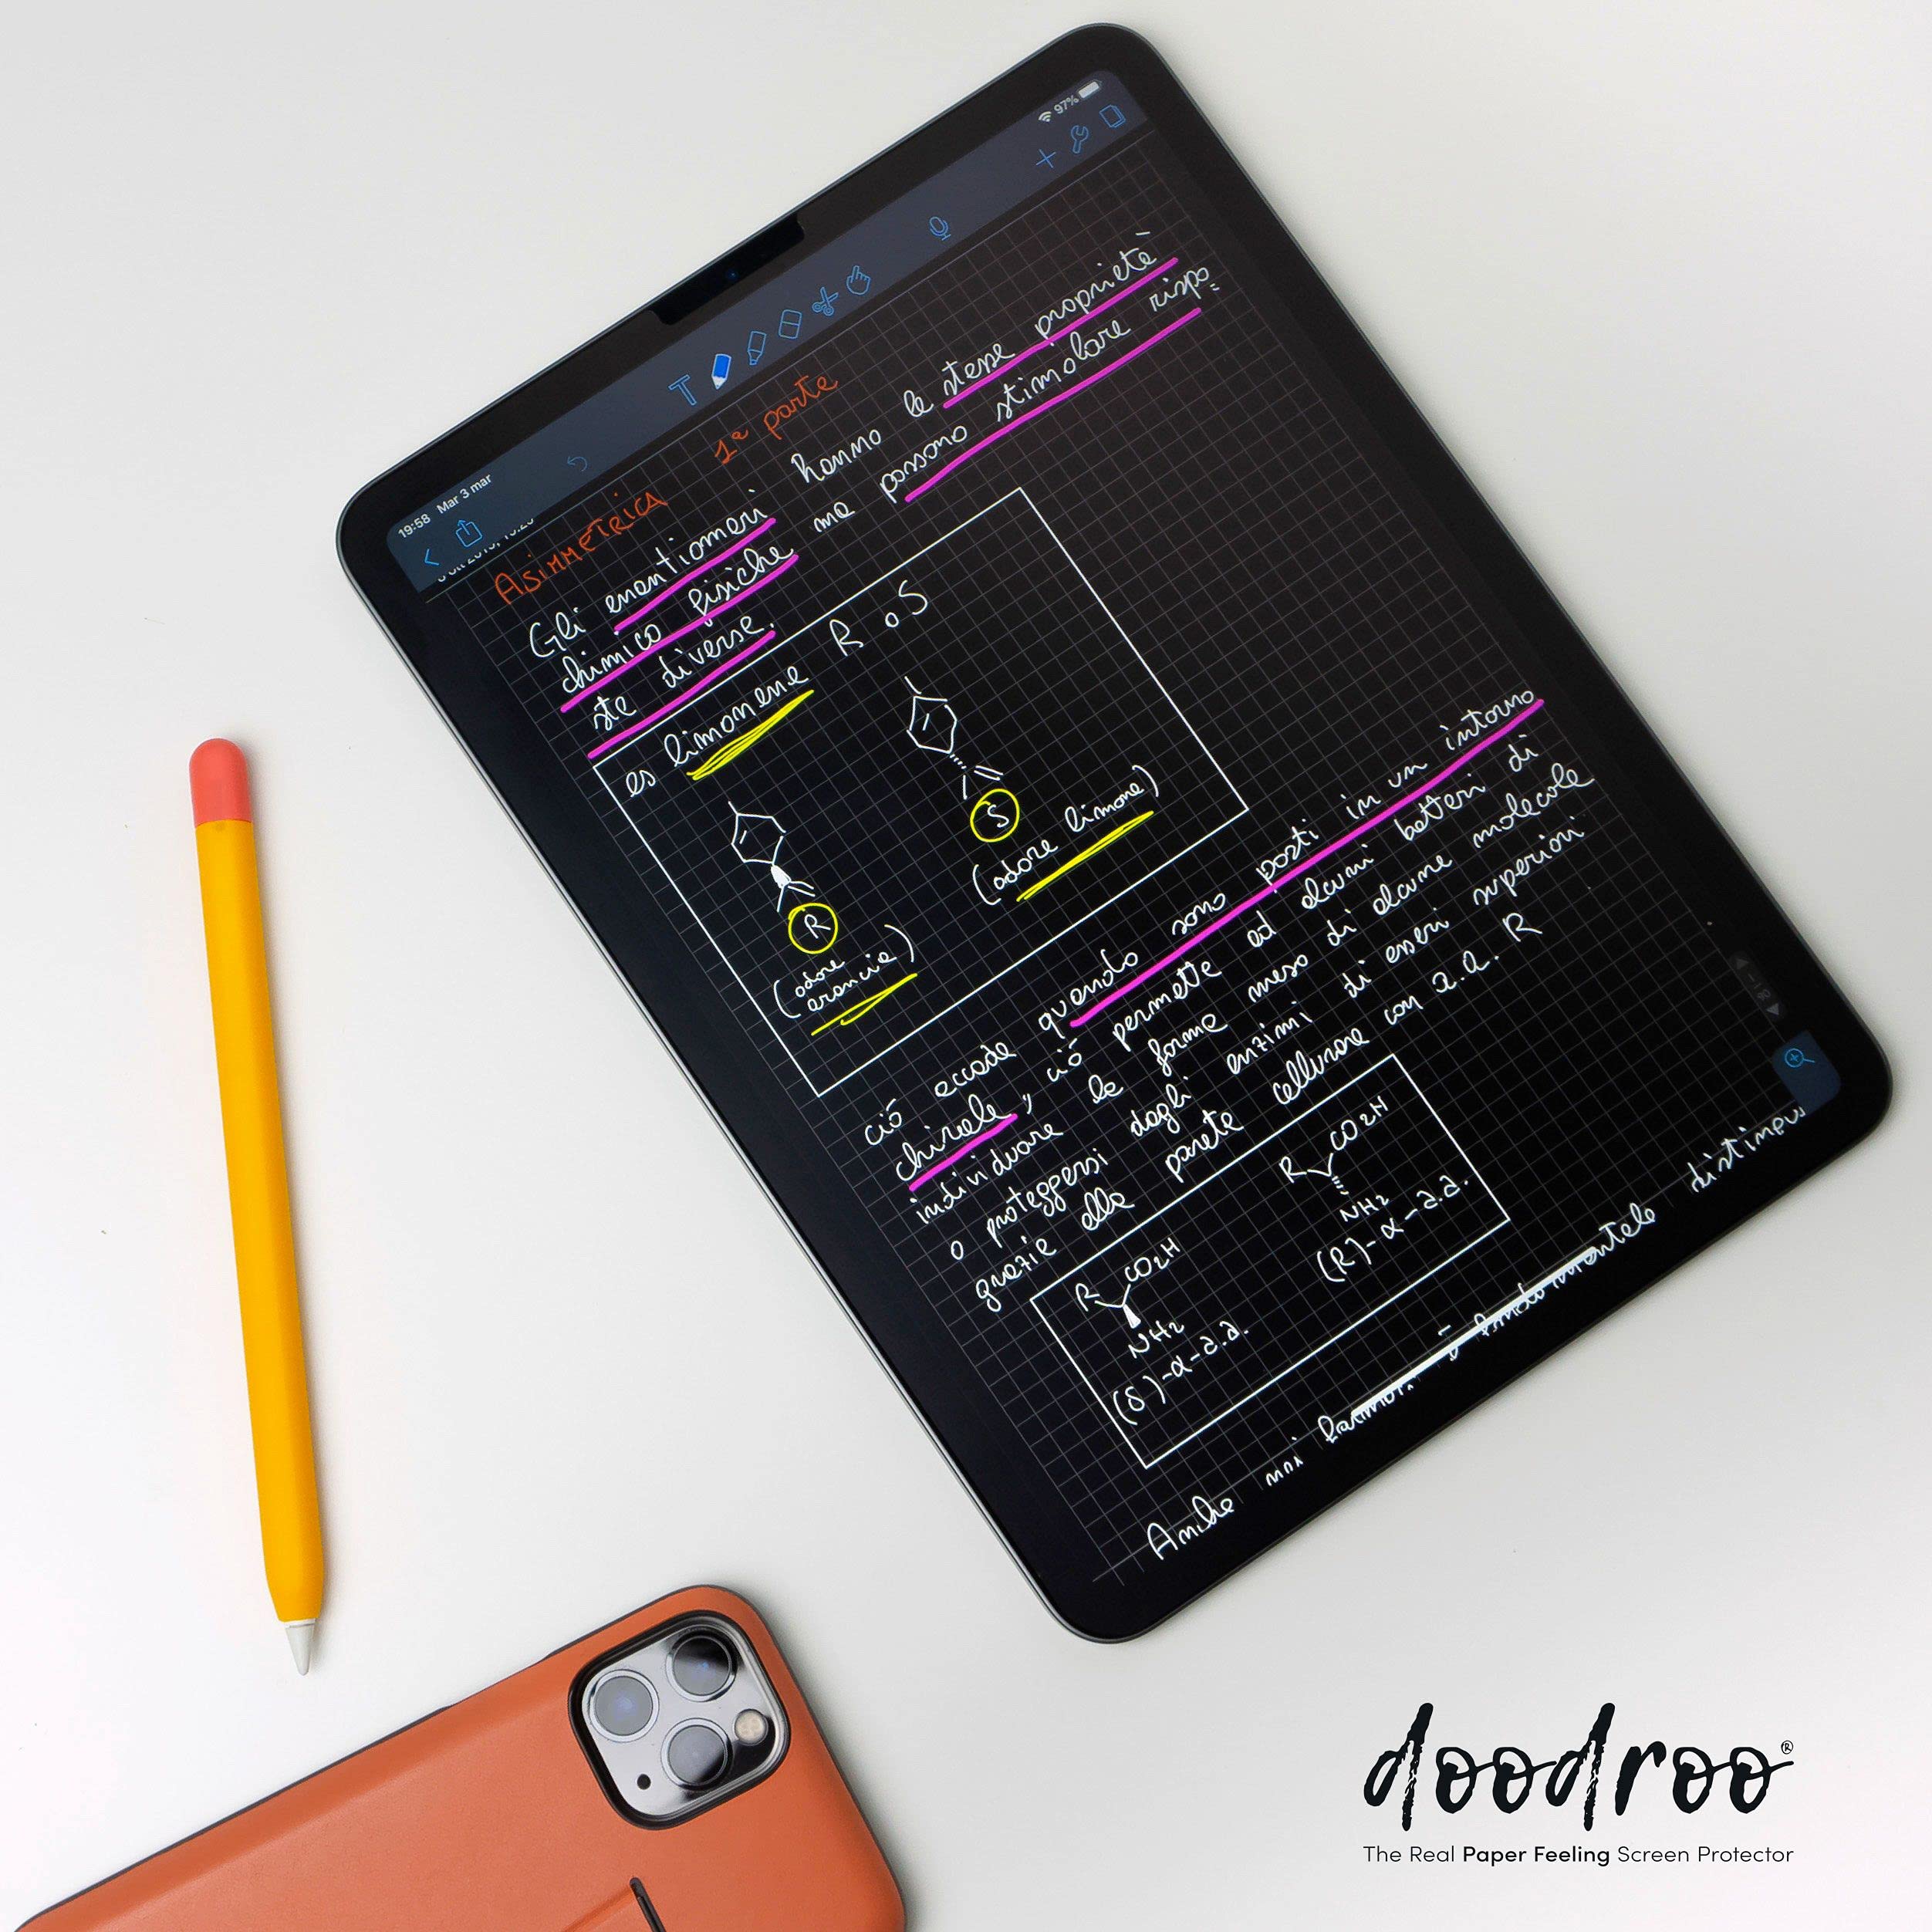 19:58 Mar 3 mar
97%
T
ASIMMETRICA 1ª parte
Gli enantiomeri hanno le stesse proprietà
chimico fisiche ma possono stimolare rispo=
ste diverse.
es limonene R o S
R
(odore
arancia)
S
(odore limone)
ciò accade quando sono posti in un intorno
chirale, ciò permette ad alcuni batteri di
individuare le forme meso di alcune molecole
o proteggersi dagli enzimi di esseri superiori
grazie alla parete cellulare con a.a. R
R CO2H
NH2
(S)-α-a.a.
R CO2H
NH2
(R)-α-a.a.
Anche nei farmaci è fondamentale
doodroo®
The Real Paper Feeling Screen Protector